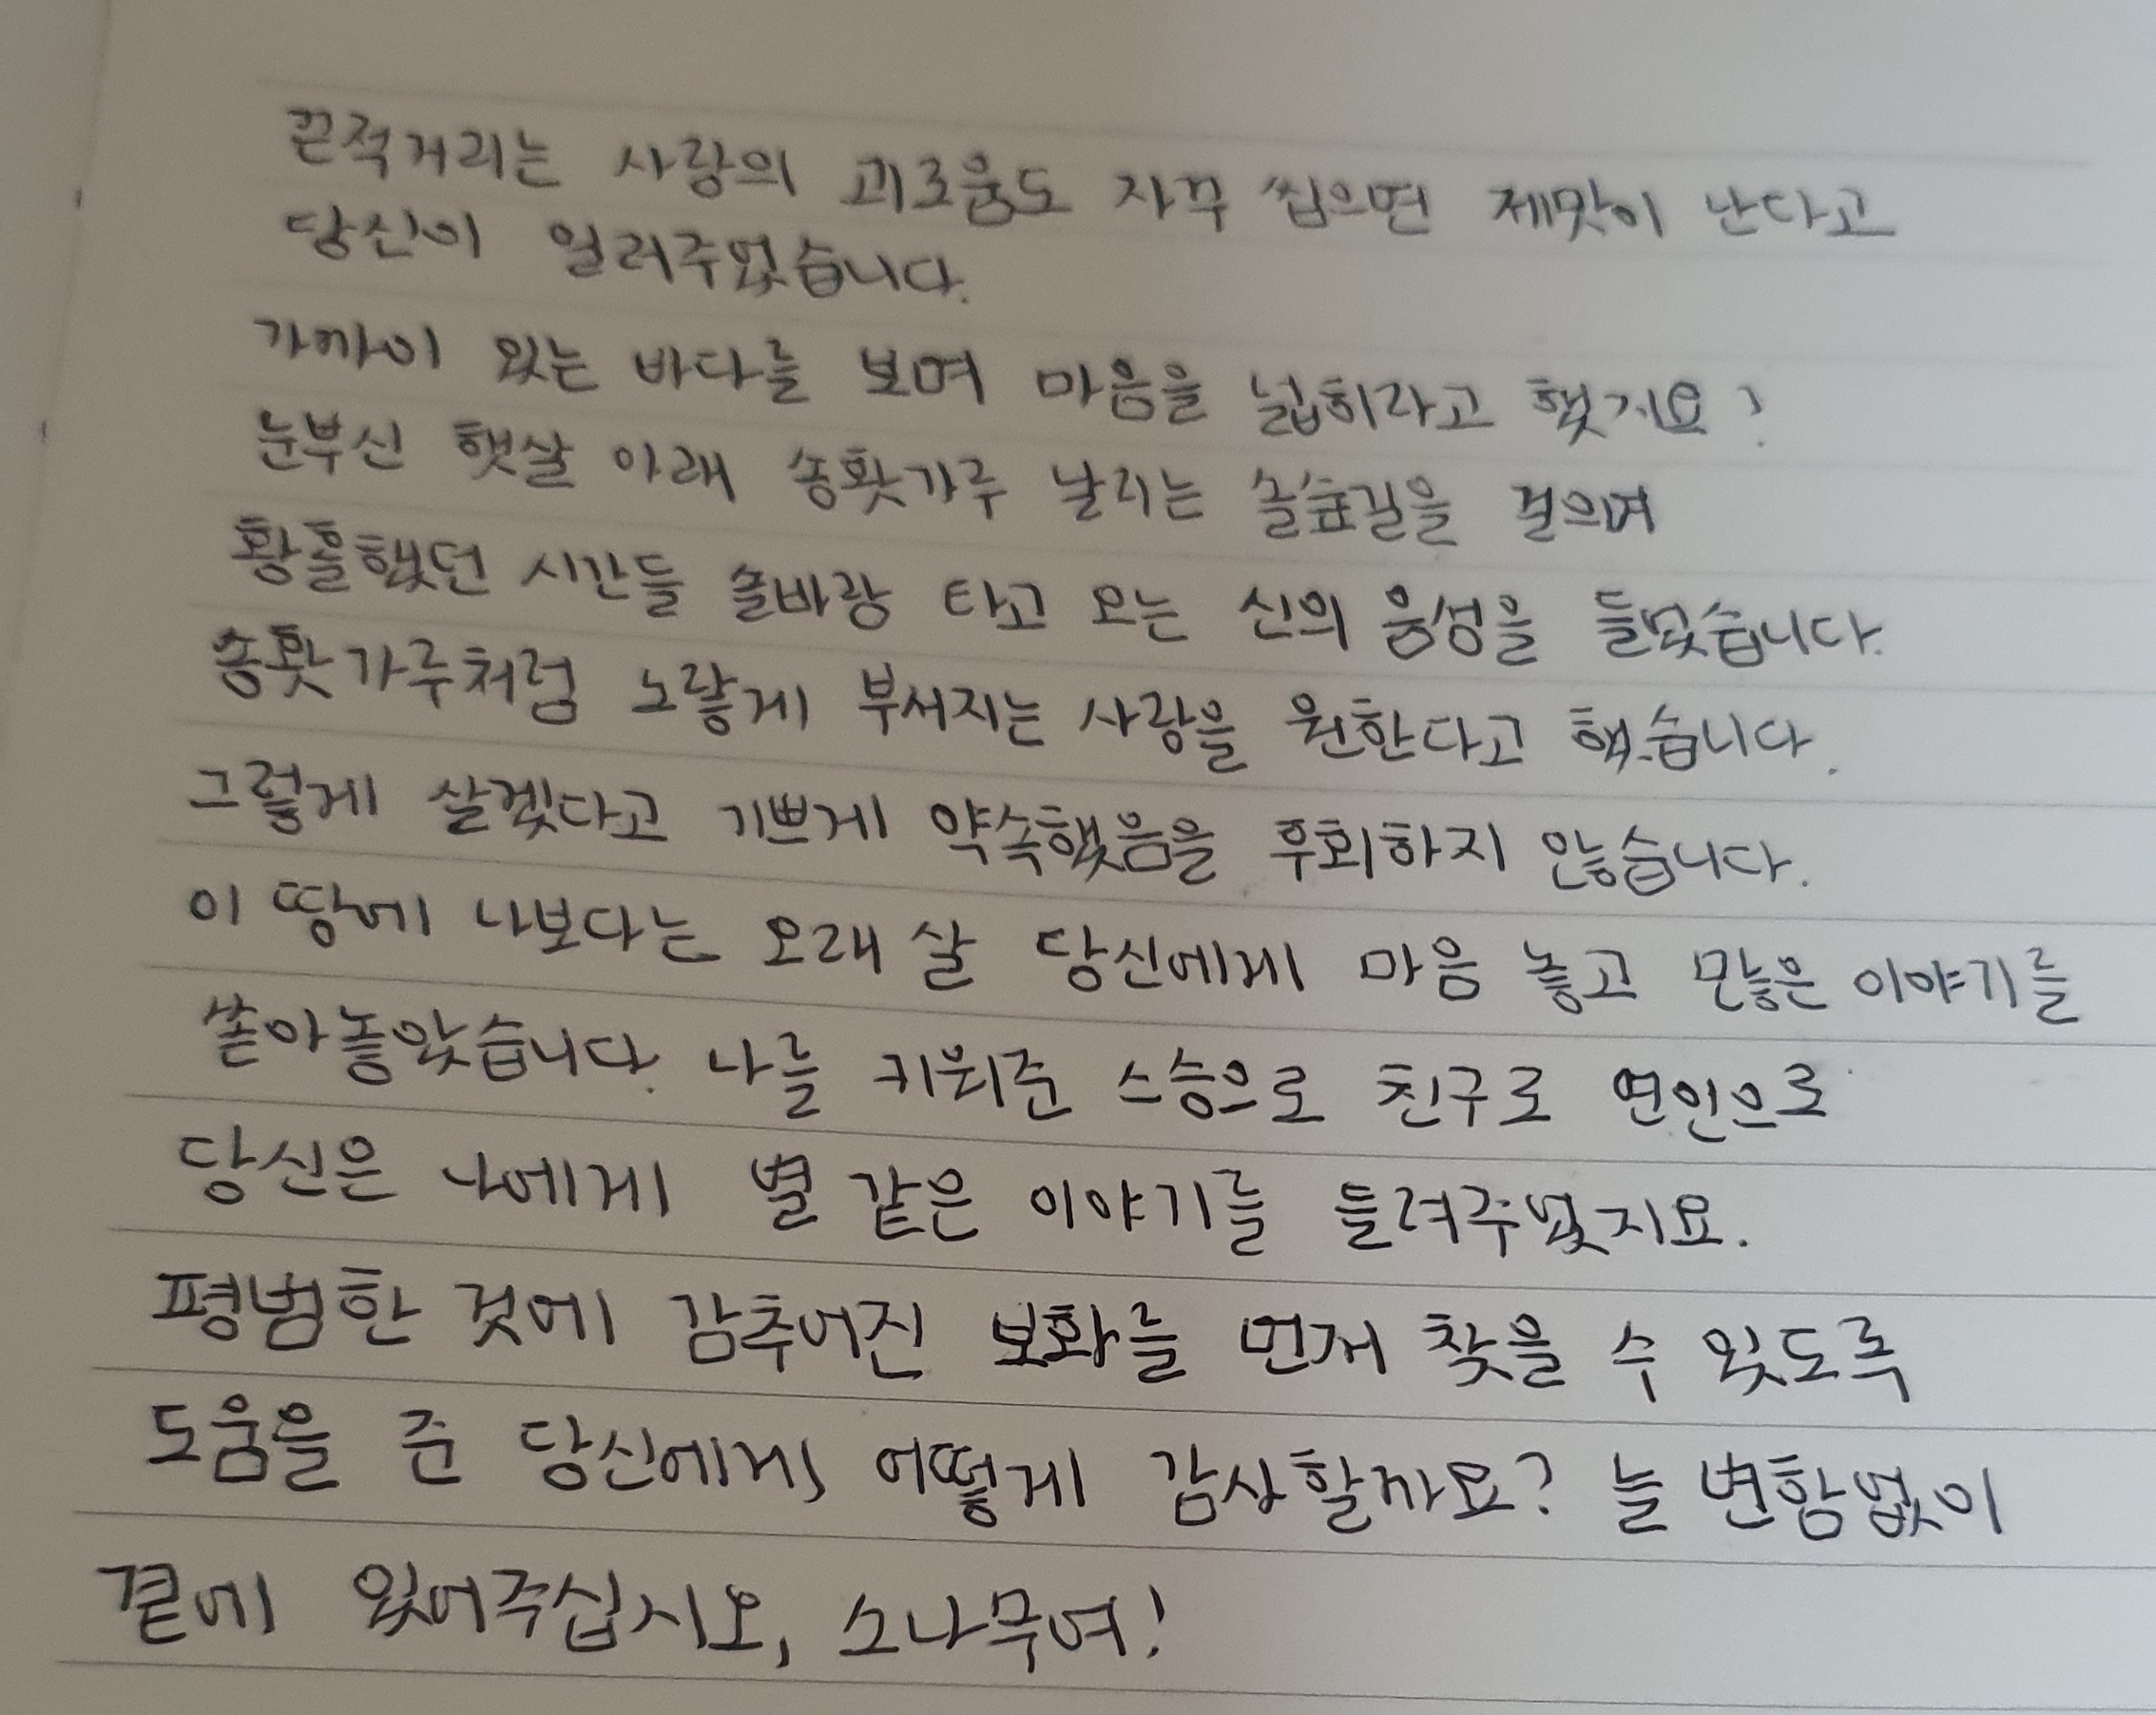 끈적거리는 사랑의 괴로움도 자꾸 씹으면 제맛이 난다고
당신이 일러주었습니다.
가까이 있는 바다를 보며 마음을 넓히라고 했지요?
눈부신 햇살 아래 송홧가루 날리는 솔숲길을 걸으며
황홀했던 시간들 솔바람 타고 오는 신의 음성을 들었습니다.
송홧가루처럼 노랗게 부서지는 사랑을 원한다고 했습니다.
그렇게 살겠다고 기쁘게 약속했음을 후회하지 않습니다.
이 땅에 나보다는 오래 살 당신에게 마음 놓고 많은 이야기를
쏟아놓았습니다. 나를 키워준 스승으로 친구로 연인으로
당신은 나에게 별 같은 이야기를 들려주었지요.
평범한 것에 감추어진 보화를 먼저 찾을 수 있도록
도움을 준 당신에게 어떻게 감사할까요? 늘 변함없이
곁에 있어주십시오, 소나무여!